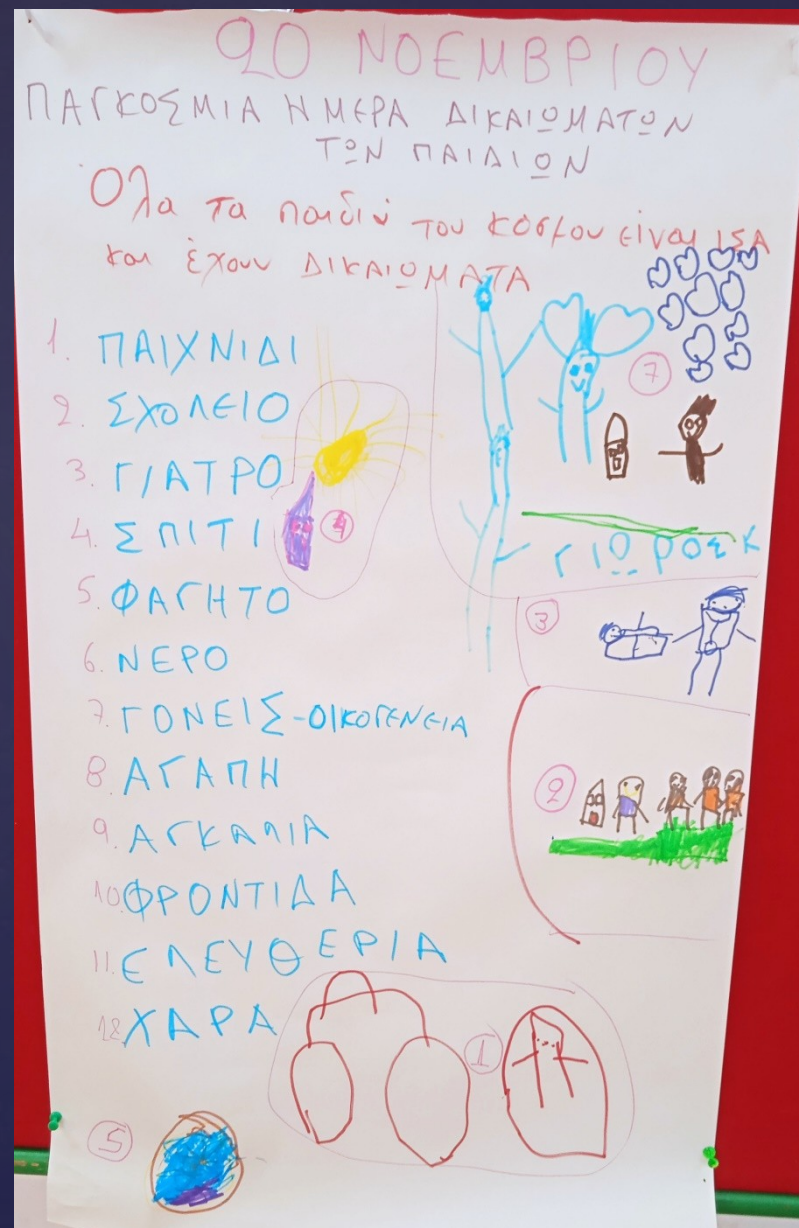 20 ΝΟΕΜΒΡΙΟΥ
ΠΑΓΚΟΣΜΙΑ ΗΜΕΡΑ ΔΙΚΑΙΩΜΑΤΩΝ
ΤΩΝ ΠΑΙΔΙΩΝ
Όλα τα παιδιά του κόσμου είναι ΙΣΑ
και έχουν ΔΙΚΑΙΩΜΑΤΑ
1. ΠΑΙΧΝΙΔΙ
2. ΣΧΟΛΕΙΟ
3. ΓΙΑΤΡΟ
4. ΣΠΙΤΙ
5. ΦΑΓΗΤΟ
6. ΝΕΡΟ
7. ΓΟΝΕΙΣ-ΟΙΚΟΓΕΝΕΙΑ
8. ΑΓΑΠΗ
9. ΑΓΚΑΛΙΑ
10. ΦΡΟΝΤΙΔΑ
11. ΕΛΕΥΘΕΡΙΑ
12. ΧΑΡΑ
7
4
ΓΙΩΡΟΣΚ
3
2
1
5